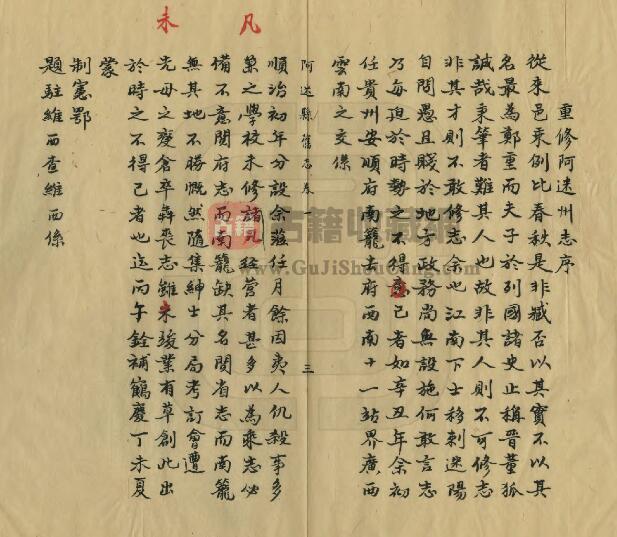 重修阿迷州志序
從來邑乘例比春秋是非臧否以其實不以其
名最為鄭重而夫子於列國諸史止稱晉董狐
誠哉秉筆者難其人也故非其人則不可修志
非其才則不敢修志余也江南下士移刺迷陽
自問愚且賤於地方政務尚無設施何敢言志
乃每迫於時勢之不得已者如辛丑年余初
任貴州安順府南籠去府西南十一站界廣西
雲南之交係
阿迷縣舊志卷 三
順治初年分設余蒞任月餘因夷人仇殺事多
棄之學校未修諸凡經營者甚多以為乘志必
備不意閱府志而南籠缺其名閱省志而南籠
無其地不勝慨然隨集紳士分局考訂會遭
先母之變倉卒犇喪志雖未竣業有草創此出
於時之不得已者也迄丙午銓補鶴慶丁未夏
蒙
制憲鄂
題駐維西查維西係
凡
未
古籍收藏
www.GuJiShouCang.com